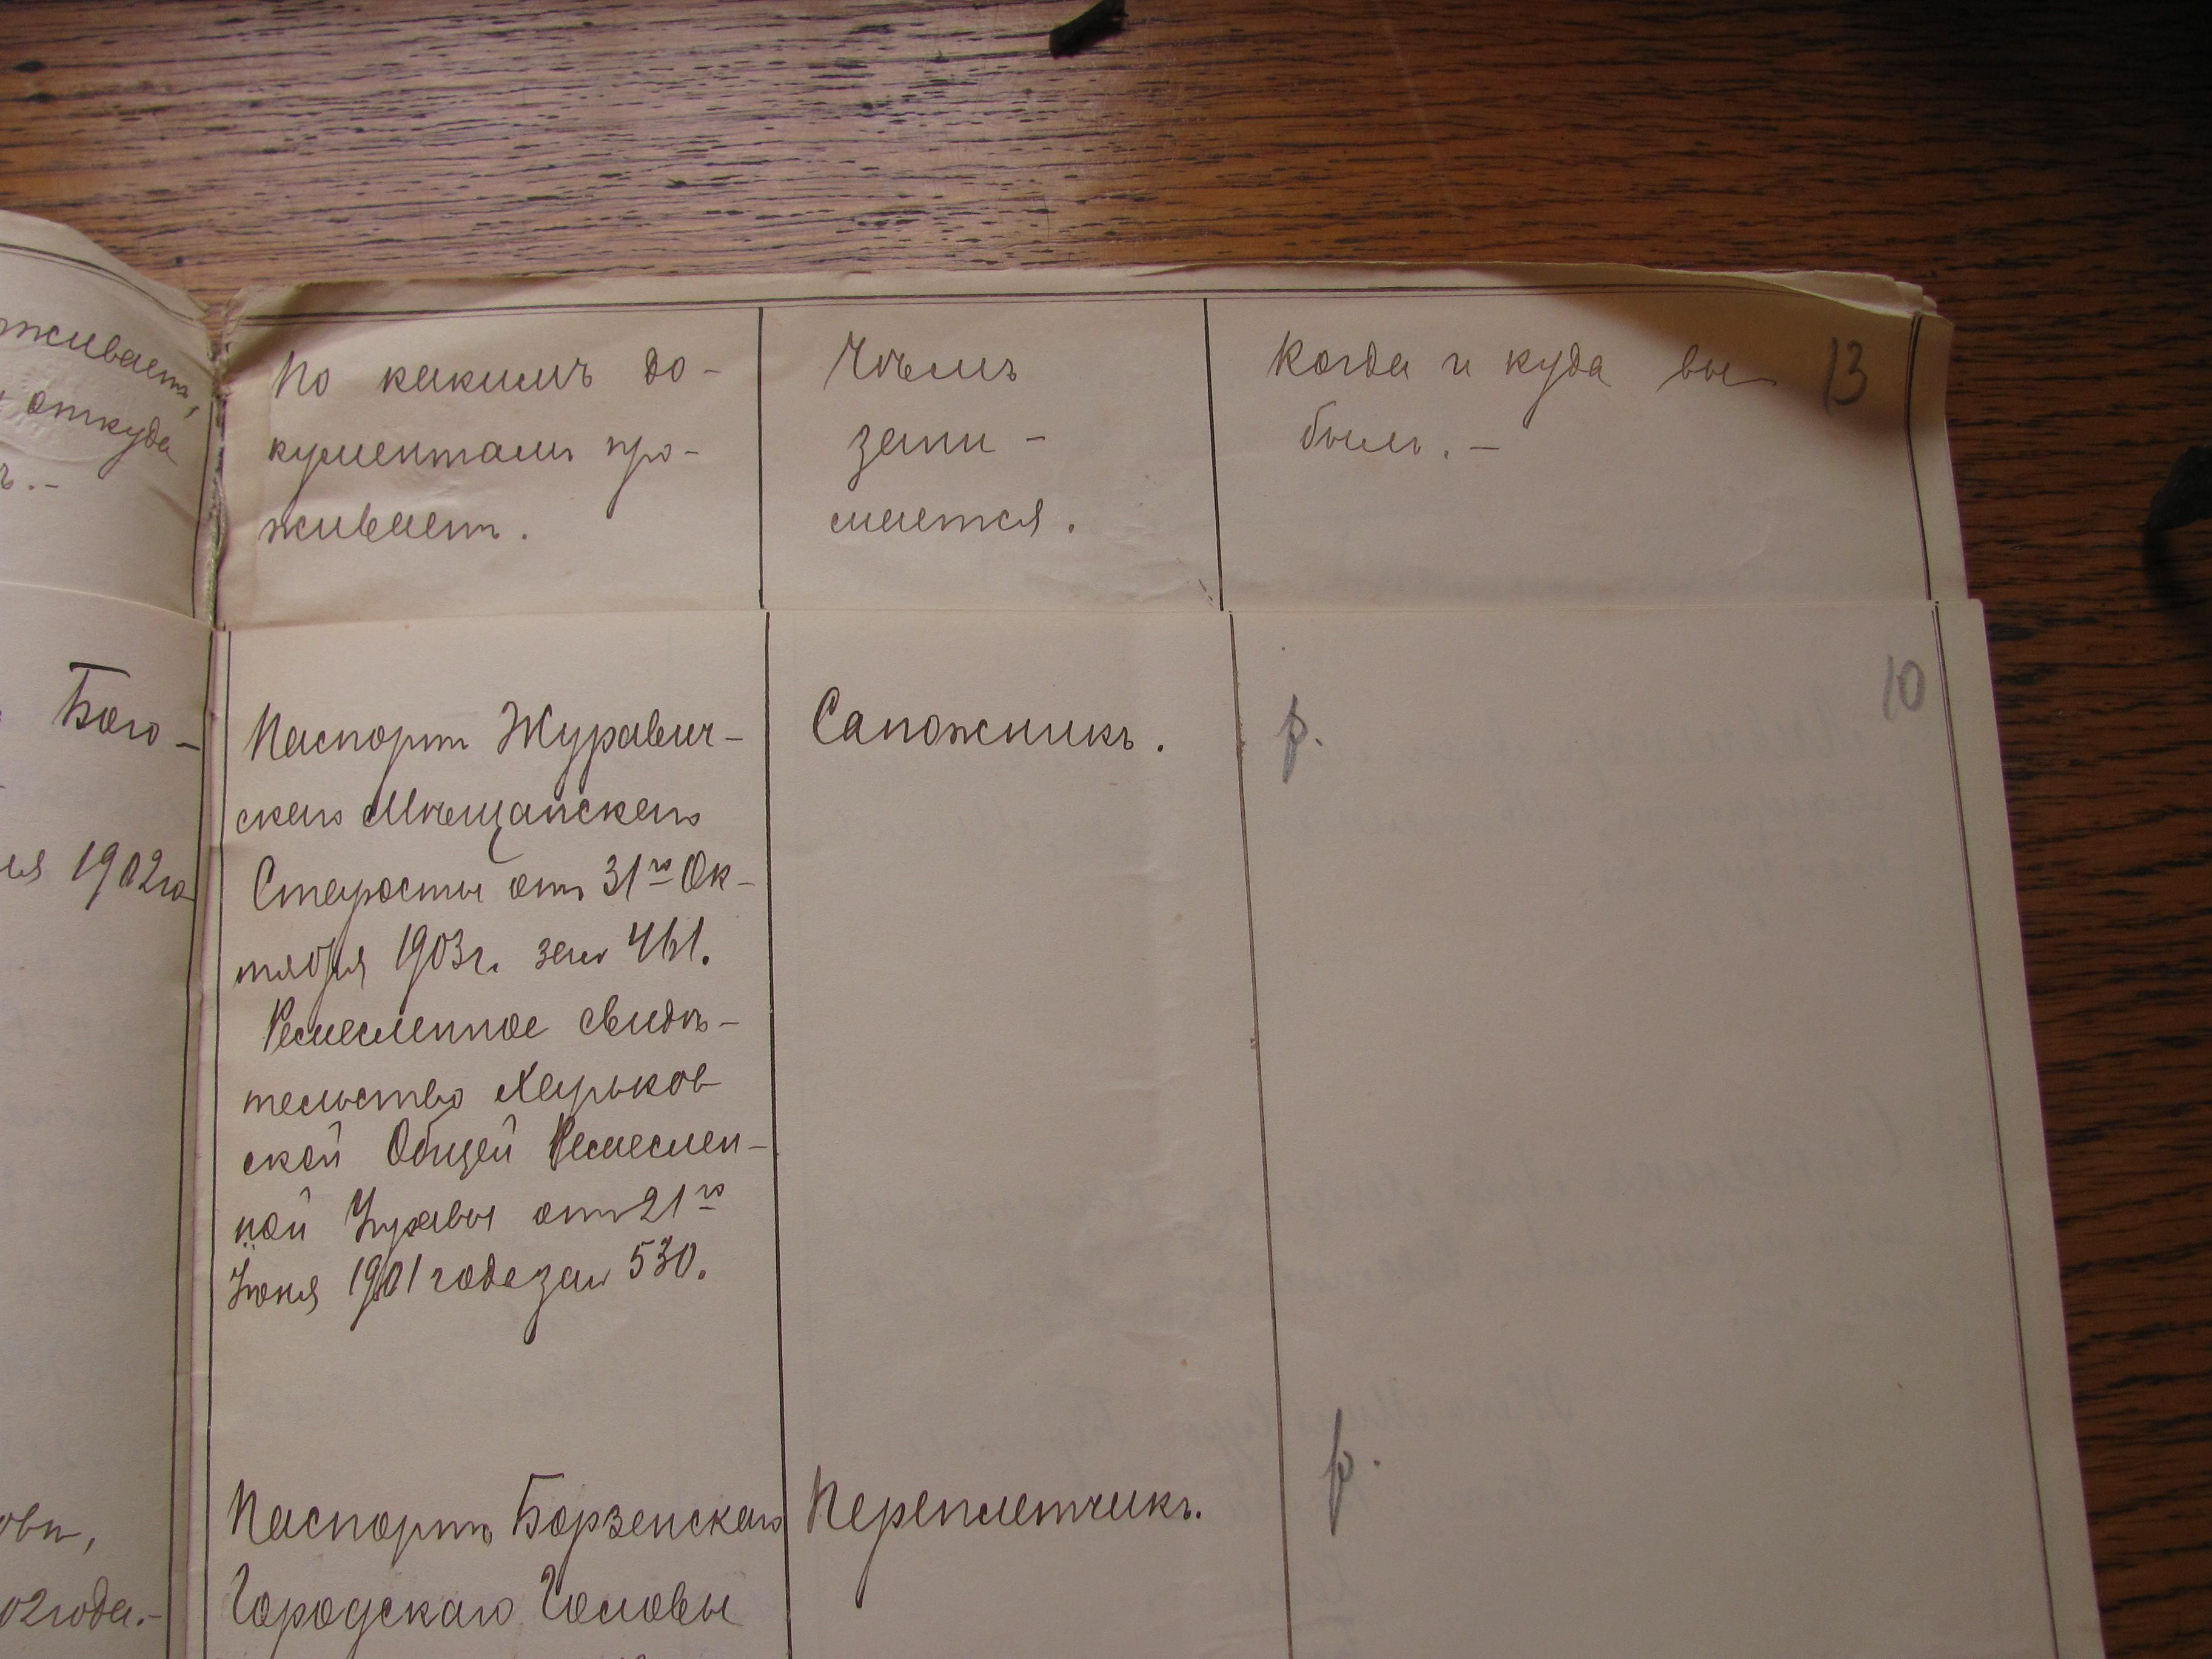 живаетъ,
откуда
По какимъ до-
кументамъ про-
живаетъ.
Чѣмъ
зани-
мается.
Когда и куда вы
былъ.-
13
Бого-
1902го
Паспортъ Журавич-
скаго Мѣщанскаго
Старосты отъ 31го Ок-
тября 1903г. за №
Ремесленное свидѣ-
тельство Харьков
ской Общей Ремеслен-
ной Управы отъ 21го
Іюня 1901 года за № 530.
Сапожникъ.
р.
10
02 года.-
Паспортъ Борзенскаго
Городскаго Головы
Переплетчикъ.
р.